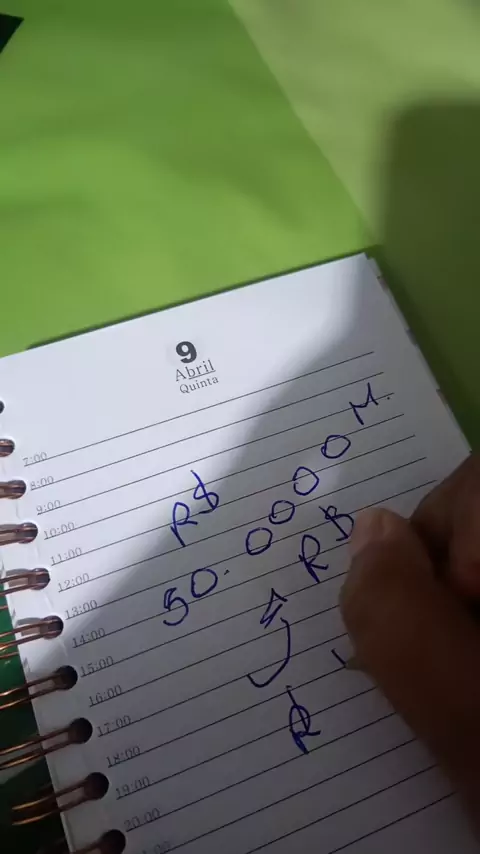 9
Abril
Quinta
7:00
8:00
9:00
10:00
11:00
12:00
13:00
14:00
15:00
16:00
17:00
18:00
19:00
20:00
R$
50.0000 M.
R$